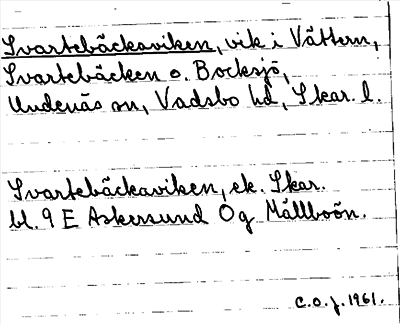 Svartebäckaviken, vik i Vättern,
Svartebäcken o. Bocksjö,
Undenäs sn, Vadsbo hd, Skar. l.
Svartebäckaviken, ek. Skar.
bl. 9 E Askersund Og Mållboön.
C.O.J. 1961.